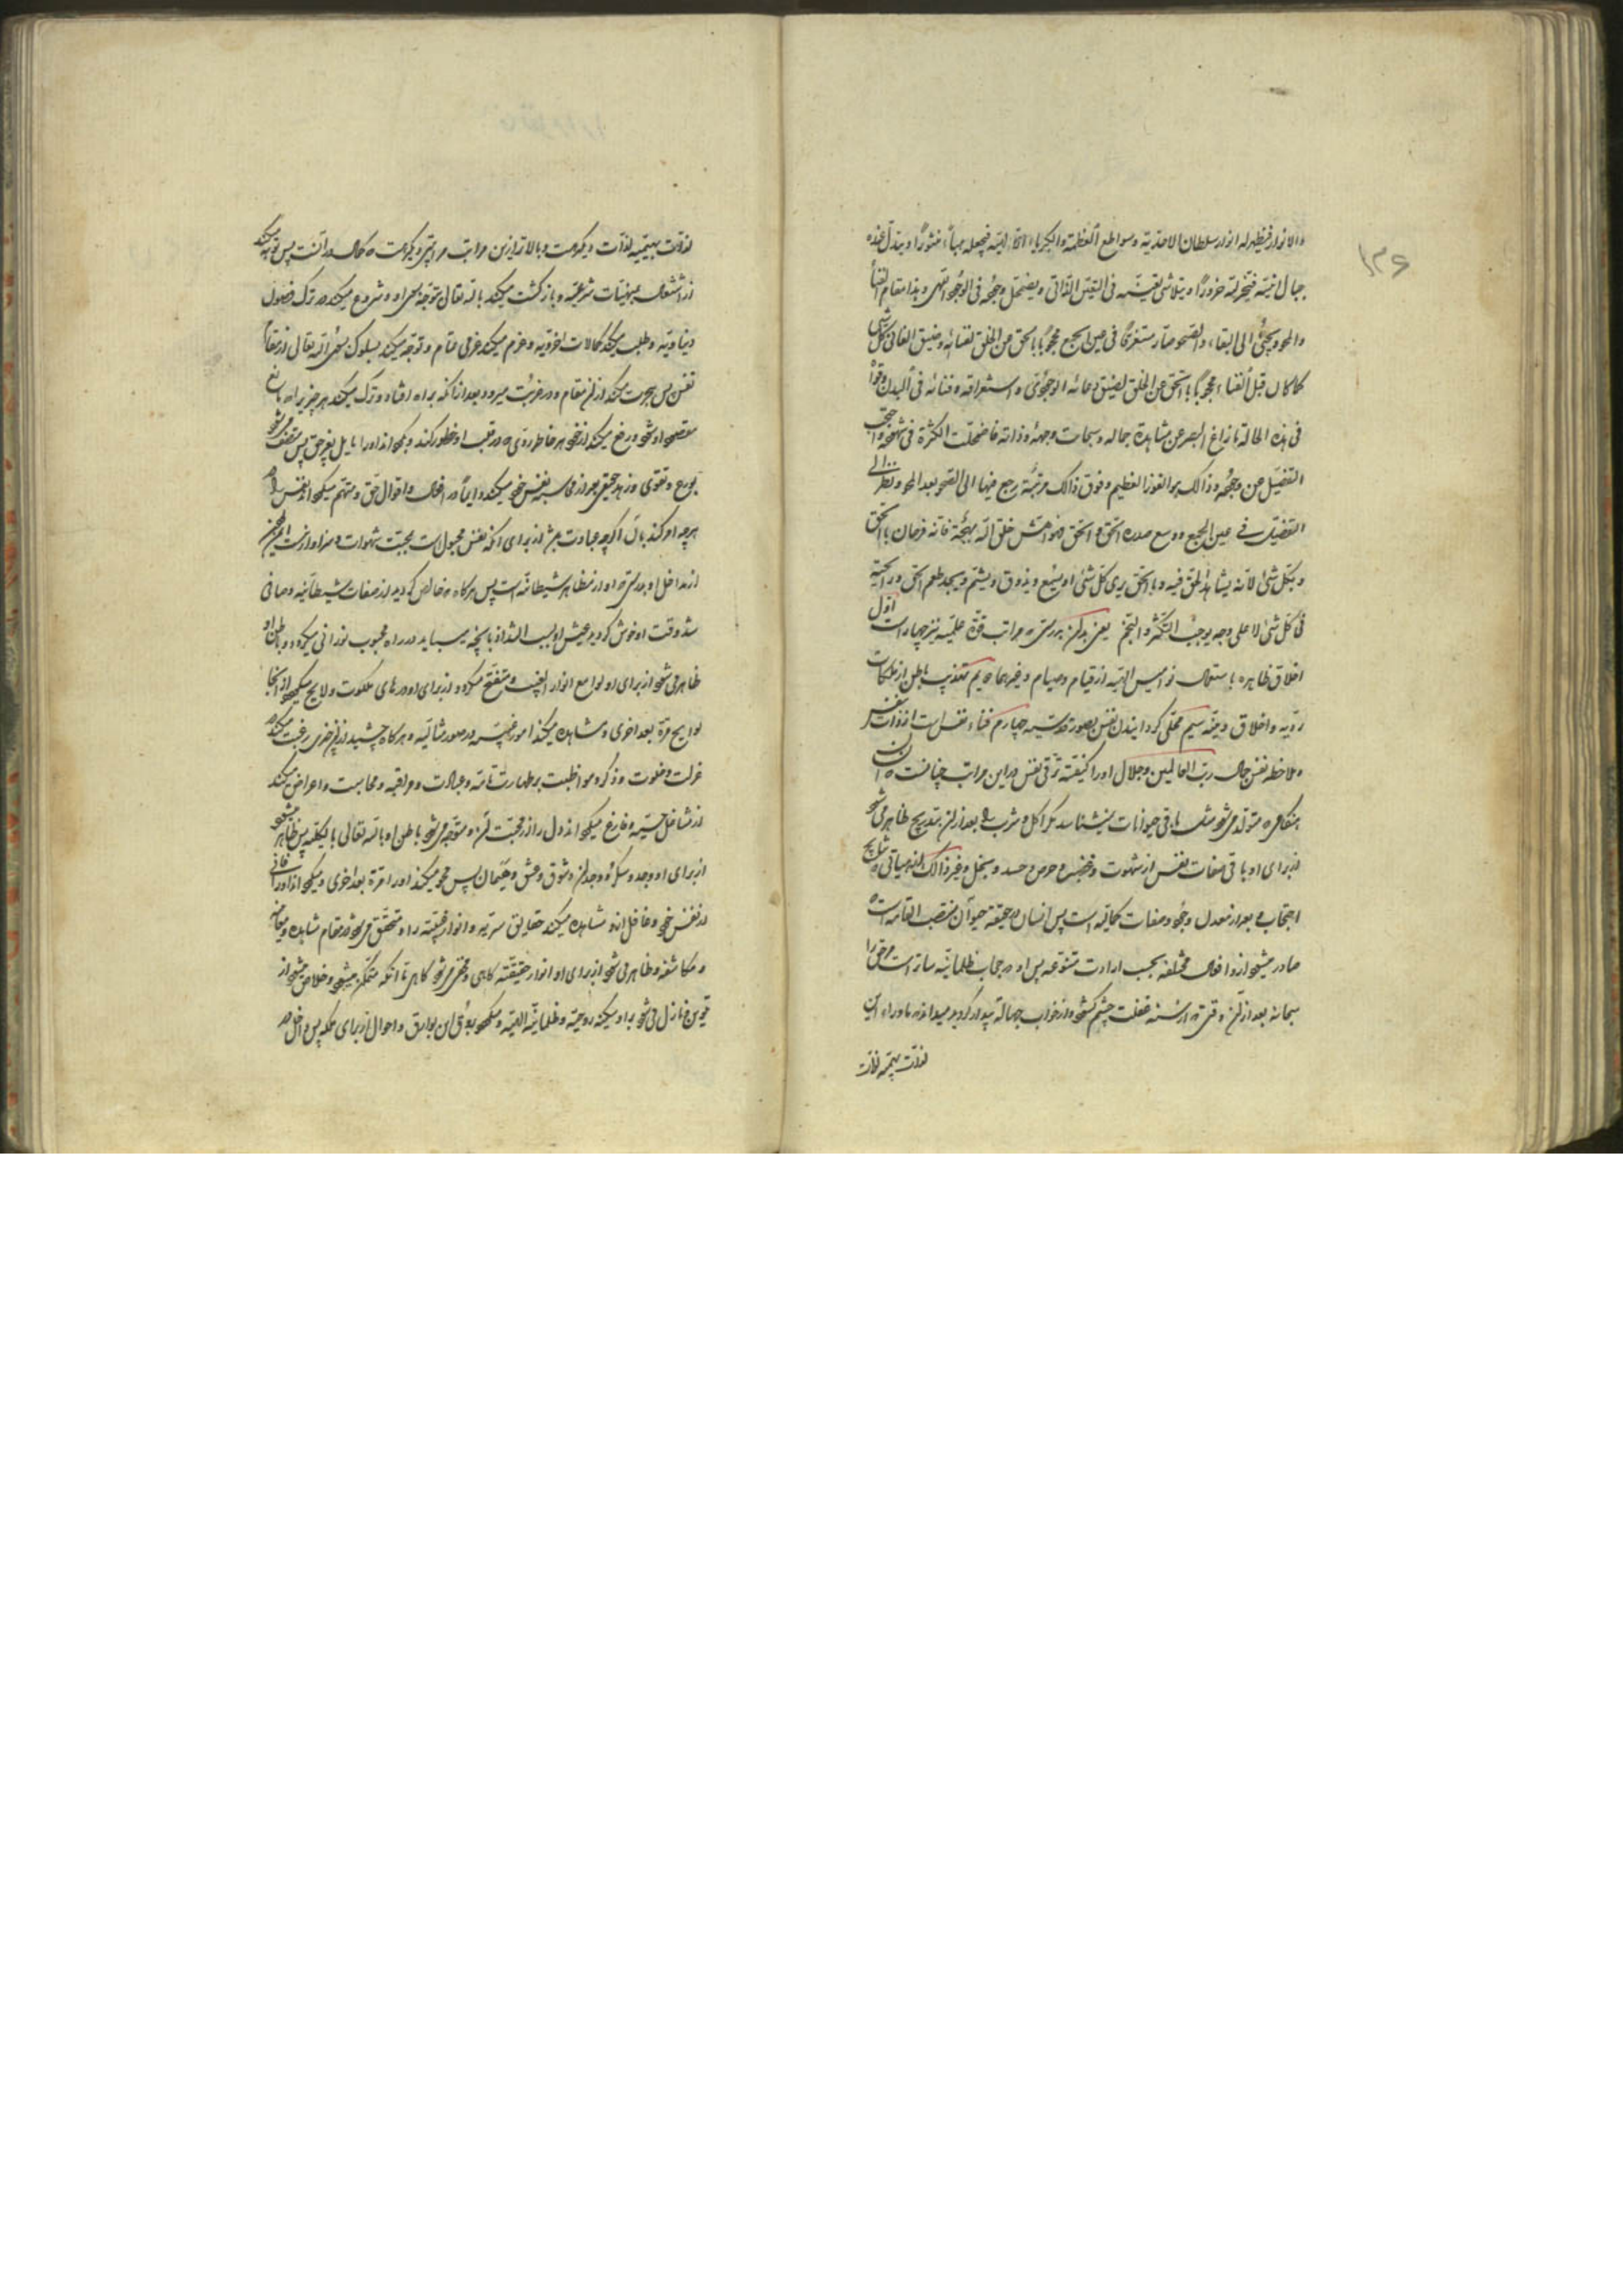 ۱۳۶
والانوار فیظهر له انوار سلطان الاحدیة وسواطع العظمة والکبریاء الالهیة فیجعله هباءً منثوراً ویندک عنده
جبال انیته فیخر لله خروراً ویتلاشی تعینه فی التعین الذاتی ویضمحل وجوده فی الوجود الالهی وهذا مقام الفنا
والمحو ویجئ الی البقاء والصحو صار مستغرقاً فی عین الجمع محجوباً بالحق عن الخلق لفنائه وضیق الفانی کل شئ
کما کان قبل الفناء محجوباً بالخلق عن الحق لضیق وعائه الوجودی واستغراقه وفنائه فی البدن وقواه
فی هذه الحالة ما زاغ البصر عن مشاهدة جماله وسبحات وجهه وذاته فاضمحلت الکثرة فی شهوده واحتجب
التفصیل عن وجوده وذالک هو الفوز العظیم وفوق ذالک مرتبة یرجع فیها الی الصحو بعد المحو ونظر الی
التفصیل فی عین الجمع ووسع صدره الحق و الخلق فهو اهش خلق الله بهجة فانه فرحان بالحق
وبکل شئ لانه یشاهد الحق فیه وبالحق یری کل شئ او یسمع ویذوق ویشم ویجد طعم الحق ورائحته
فی کل شئ لا علی وجه یوجب التکثر والتجسم یعنی بدانکه بدرستی که مراتب قوة علمیه نیز چهار است اول
اخلاق ظاهره باستعمال نوامیس الهیه از قیام وصیام وغیرهما دویم تهذیب باطن از ملکات
ردیه واخلاق دنیه سیم محلی گردانیدن نفس بصور قدسیه چهارم فناء نفس است از ذات نفس
وملاحظه نفس جمال رب العالمین وجلال او را کیفیته ترقی نفس در این مراتب چنانست که انسان
هنگامی که متولد میشود مثل باقی حیوانات نمیشناسد مگر اکل وشرب را بعد از آن بتدریج ظاهر میشود
از برای او باقی صفات نفس از شهوت وغضب وحرص وحسد وبخل وغیر ذالک از هیآتی که نتایج
احتجاب وبعد از معدل وجود وصفات کمالیه است پس انسان در حقیقة حیوان منتصب القامه است که
صادر میشود از او افعال مختلفه بحسب ارادت متنوعه پس او در حجاب ظلمانیه ساتر است مر حق را
سبحانه بعد از آن وقتی که از سنه غفلت چشم گشود واز خواب جهالة بیدار گردید میداند که ماوراء این
لذات بهیمیه لذات
لذات بهیمیه لذات دیگر هست وبالاتر از این مراتب مراتبی دیگر هست که کمال در آنست پس توبه میکند
از اشتغال بمنهیات شرعیه وباز گشت میکند بالله تعالی بتوجه بسوی او وشروع میکند در ترک فضول
دنیاویه وطلب میکند کمالات اخرویه وعزم میکند عزمی تمام وتوجه میکند بسلوک بسوی الله تعالی از مقام
نفس پس هجرت میکند از آن مقام ودر غربت میرود بعد از آنکه براه افتاد وترک میکند هر چیز را که مانع
مقصود او شود ورفع میکند از خود هر خاطر ردی که در قلب او خطور کند وبگرداند او را مایل بغیر حق پس متصف میشود
بورع وتقوی وزهد حقیقی بعد از آن محاسبه نفس خود میکند دایماً در افعال واقوال حق ومتهم میگرداند نفس را در
هر چه او کند بآن اگر چه عبادت باشد از برای آنکه نفس مجبول است بمحبت شهوات وسزاوار نیست ایمن
از مداخل او بدرستی که او از مظاهر شیطانست پس هر گاه که خالص گردید از صفات شیطانیه وصافی
شد وقت او خوش گردید عیش او بسبب التذاذ بآنچه مییابد در راه محبوب نورانی میگردد باطن او
ظاهر میشود از برای او لوامع انوار الغیب ومنفتح میگردد از برای او درهای ملکوت ولایح میگردد از آنجا
لوایح مرة بعد اخری ومشاهده میکند امور غیبیه در صور مثالیه وهر گاه چشید از آن چیزی رغبت میکند در
عزلت وخلوت وذکر ومواظبت بر طهارت تامه وعبادت ومراقبه ومحاسبت واعراض میکند
از مشاغل حسیه وفارغ میگرداند دل را از محبت آن ومتوجه میشود باطن او بالله تعالی بالکلیه پس ظاهر میشود
از برای او وجد وسکر ووجدان وشوق وعشق وهیمان پس محو میکند او را مرة بعد اخری ومیگرداند او را فانی
از نفس خود وغافل از آن مشاهده میکند حقایق سریه وانوار غیبیه را ومتحقق میشود در مقام مشاهده ومعاینه
ومکاشفه وظاهر میشود از برای او انوار حقیقته گاهی ومخفی میشود گاهی تا آنکه متمکن میشود وخلاص میشود از
تلوین ونازل میشود بر او سکینه روحیه وطمانینه الهیه ومیگردد بروق این بوارق واحوال از برای ملکه پس داخل در